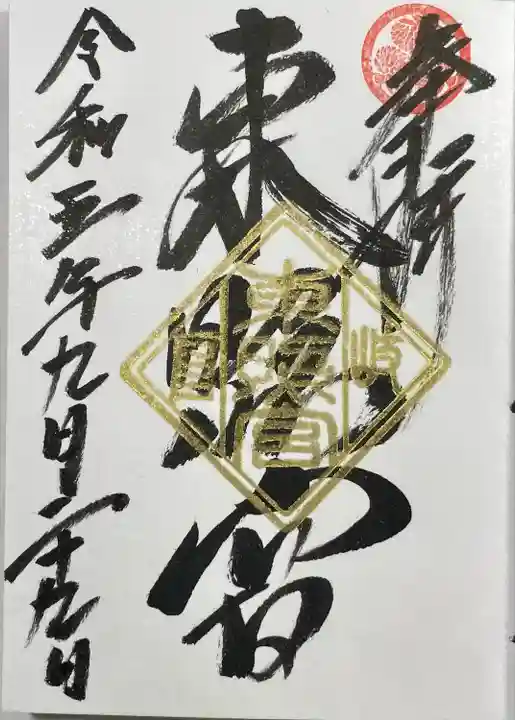 奉拝
東照宮
東照宮
令和五年九月二十九日